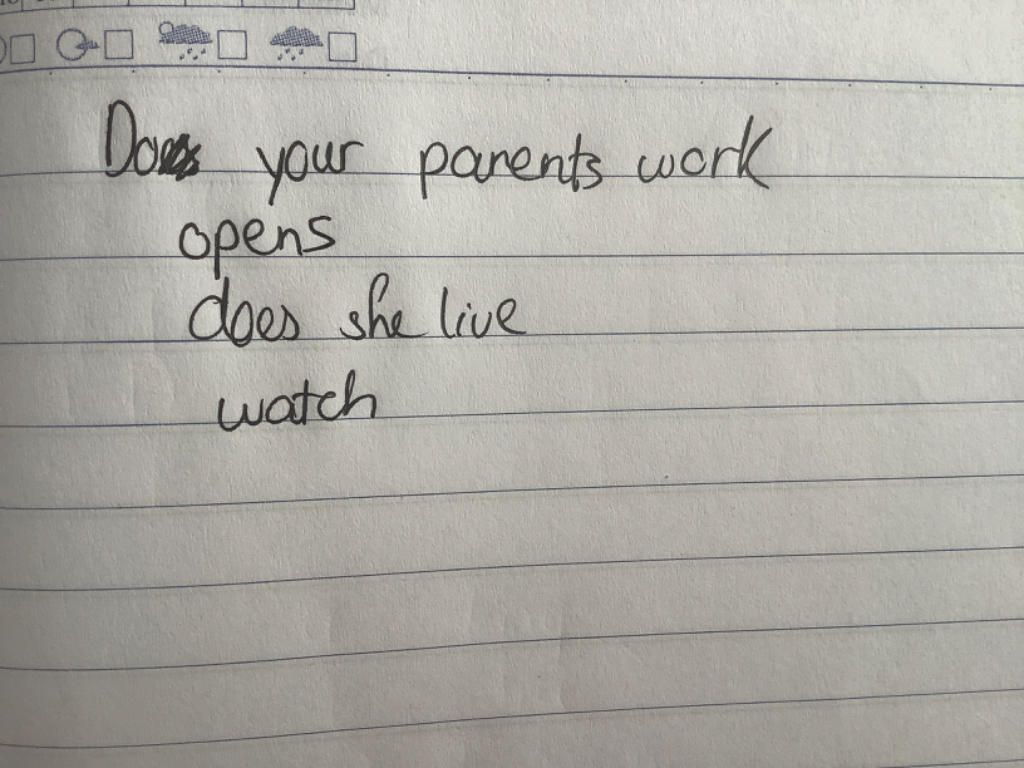 Do your parents work
opens
does she live
watch